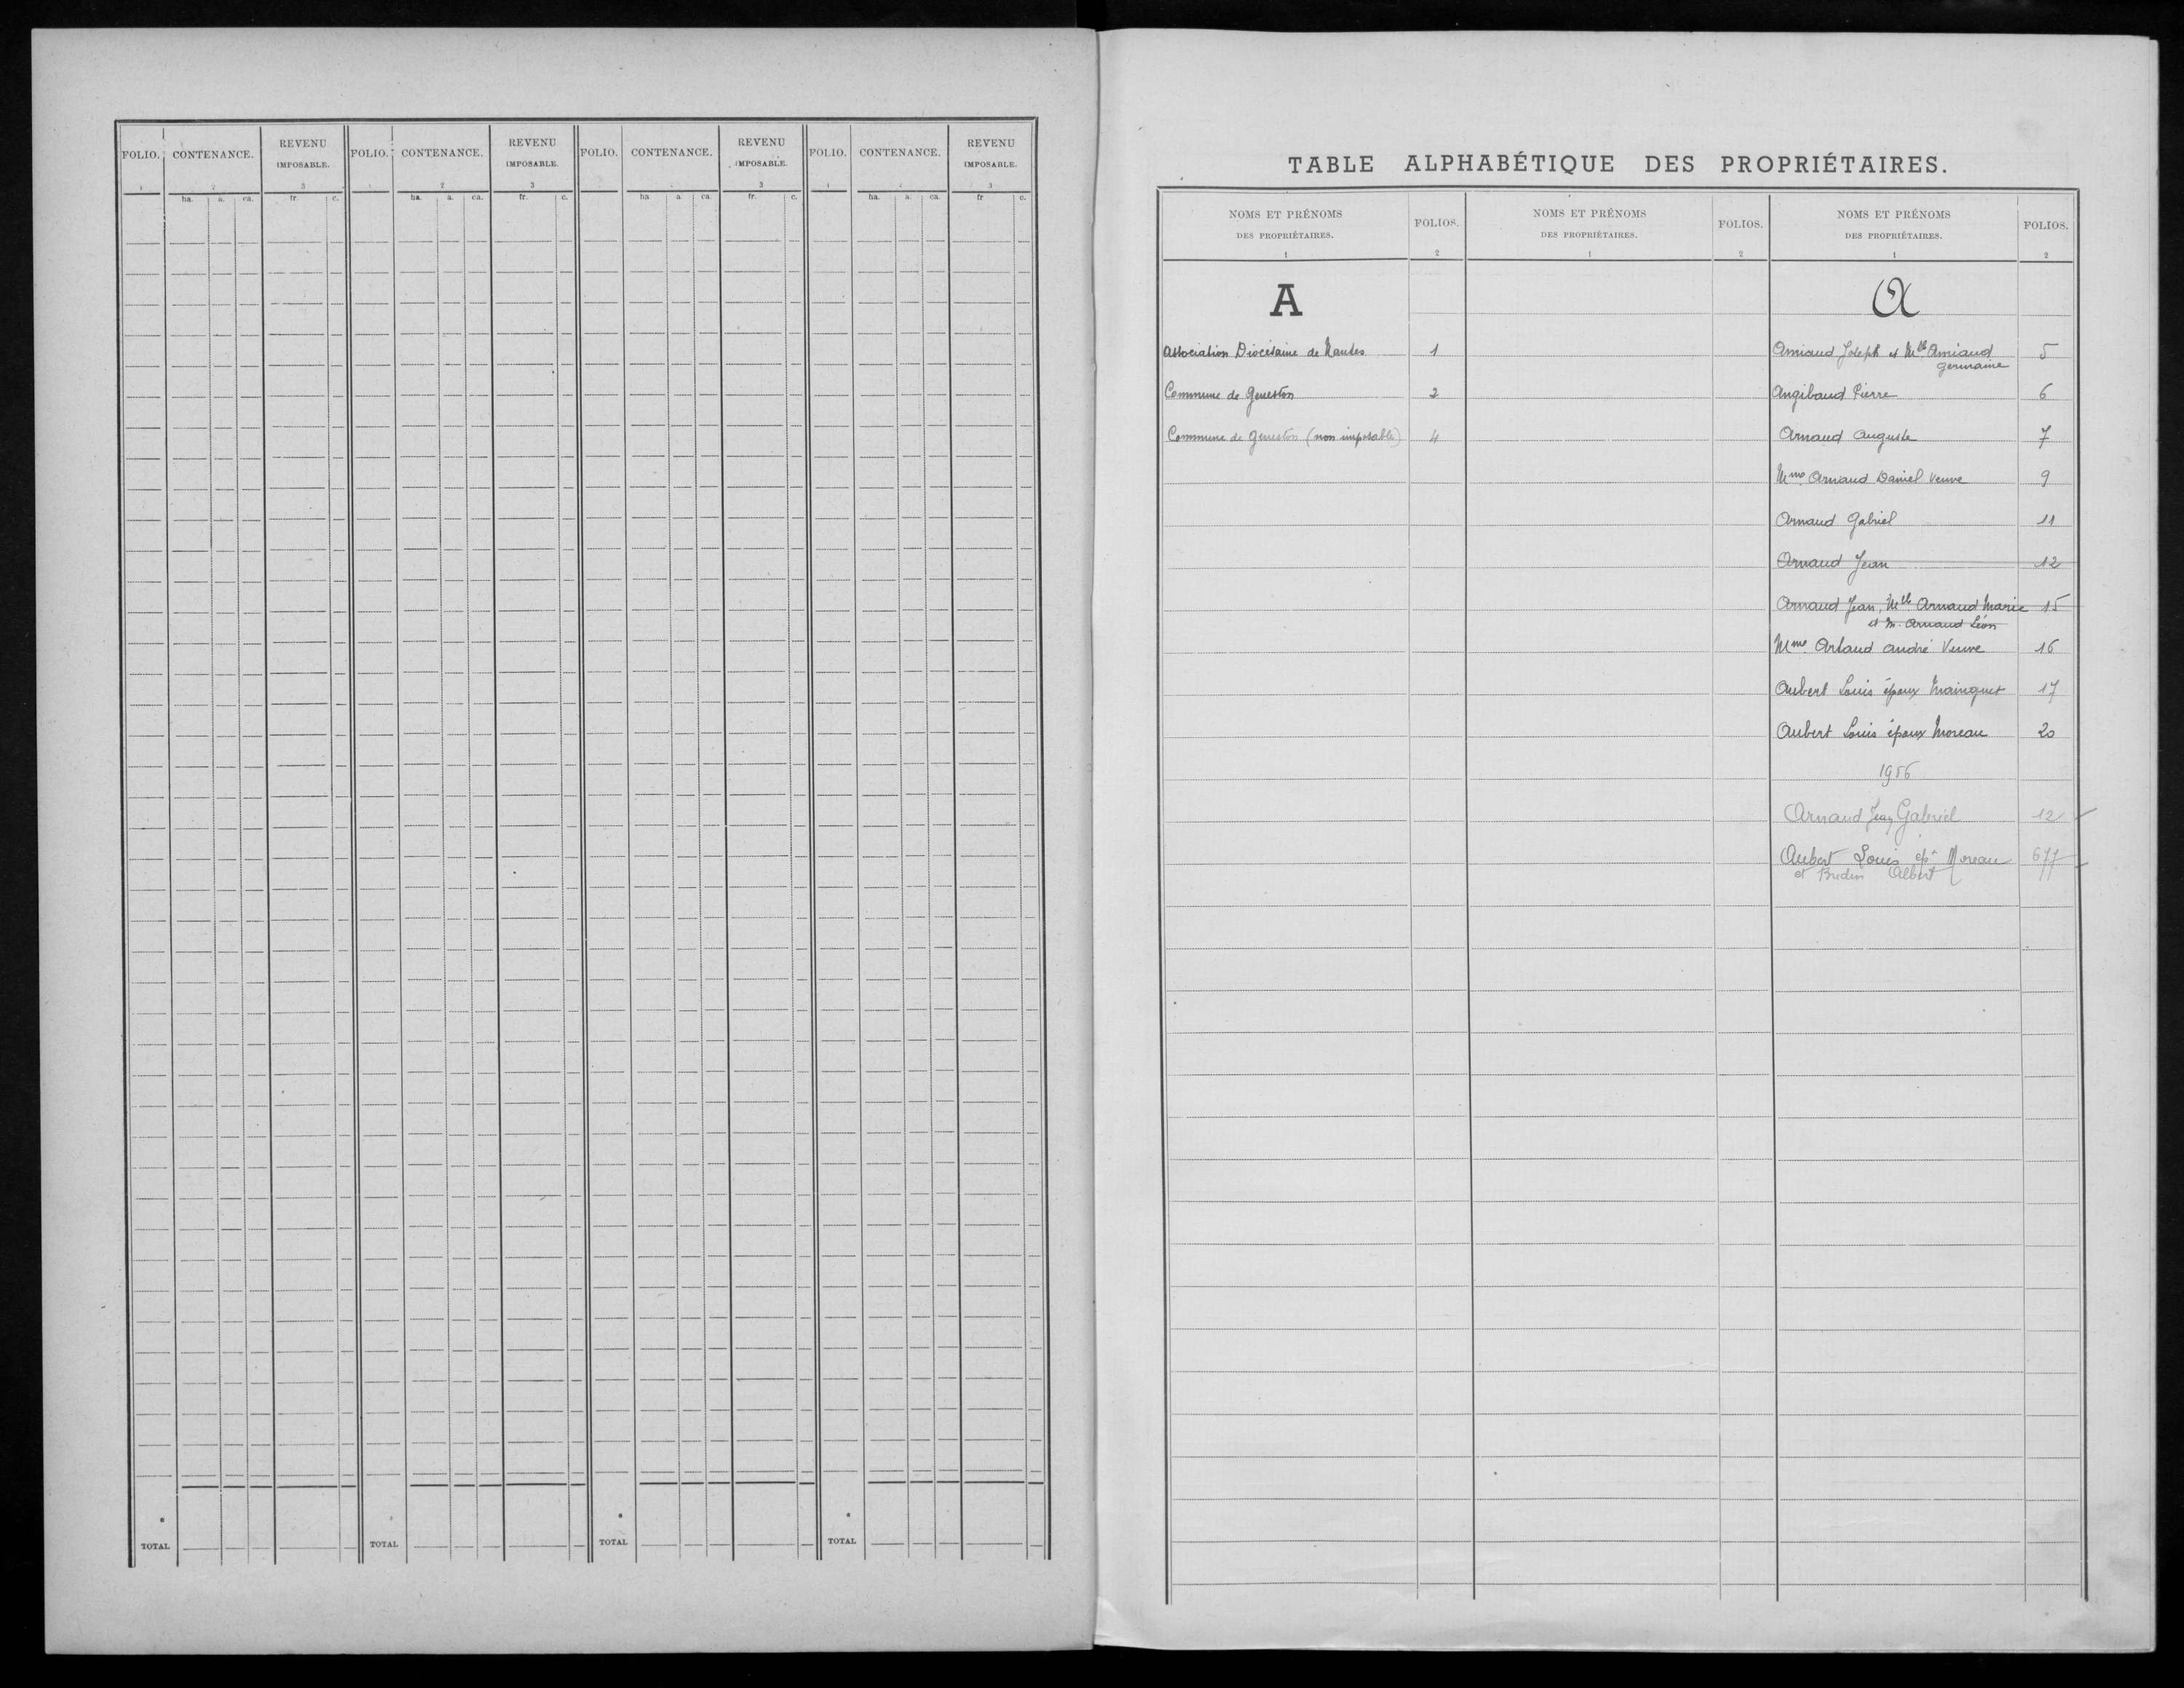 FOLIO. CONTENANCE. REVENU IMPOSABLE. FOLIO. CONTENANCE. REVENU IMPOSABLE. FOLIO. CONTENANCE. REVENU IMPOSABLE. FOLIO. CONTENANCE. REVENU IMPOSABLE.
1 2 3 1 2 3 2 3 1 2 3
ha. a. ca. fr. c. ha. a. ca. fr. c. ha a. ca. fr. c. ha. a. ca. fr c.
TOTAL TOTAL TOTAL TOTAL
TABLE ALPHABÉTIQUE DES PROPRIÉTAIRES.
NOMS ET PRÉNOMS DES PROPRIÉTAIRES. FOLIOS. NOMS ET PRÉNOMS DES PROPRIÉTAIRES. FOLIOS. NOMS ET PRÉNOMS DES PROPRIÉTAIRES. FOLIOS.
1 2 1 2 1 2
A
Association Diocésaine de Nantes 1
Commune de Geneston 2
Commune de Geneston (non imposable) 4
A
Amiaud Joseph et Mlle Amiaud 5
Germaine
Angibaud Pierre 6
Arnaud Auguste 7
Mme Arnaud Daniel Veuve 9
Arnaud Gabriel 11
Arnaud Jean 12
Arnaud Jean, Mlle Arnaud Marie 15
et M. Arnaud Léon
Mme Artaud André Veuve 16
Aubert Louis époux Mainguet 17
Aubert Louis époux Moreau 20
1956
Arnaud Jean Gabriel 12
Aubert Louis épx Moreau 677
et Albert